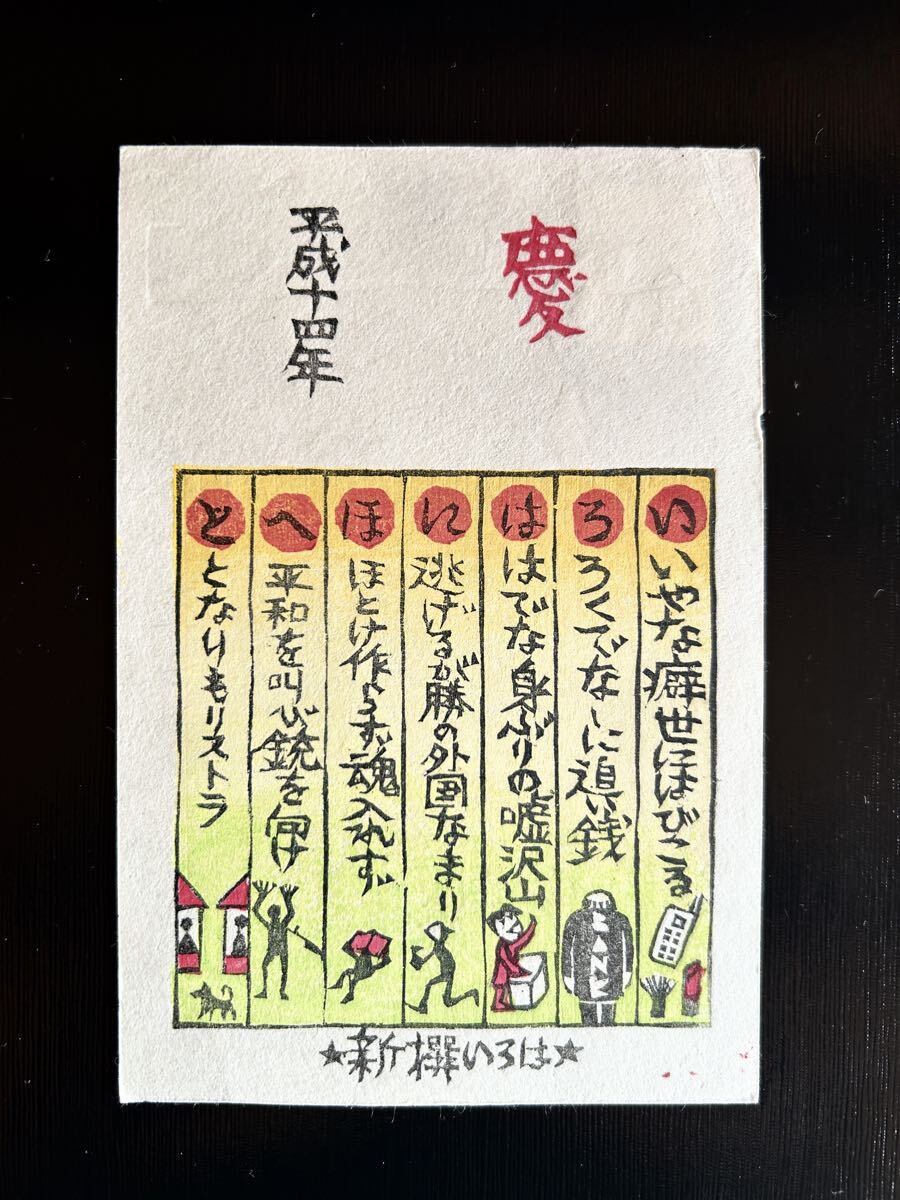 慶
平成十四年
い
いやな癖世にはびこる
ろ
ろくでなしに追い銭
は
はでな身ぶりの嘘沢山
に
逃げるが勝の外国なまり
ほ
ほとけ作らず魂入れず
へ
平和を叫び銃を向け
と
となりもリストラ
★新撰いろは★